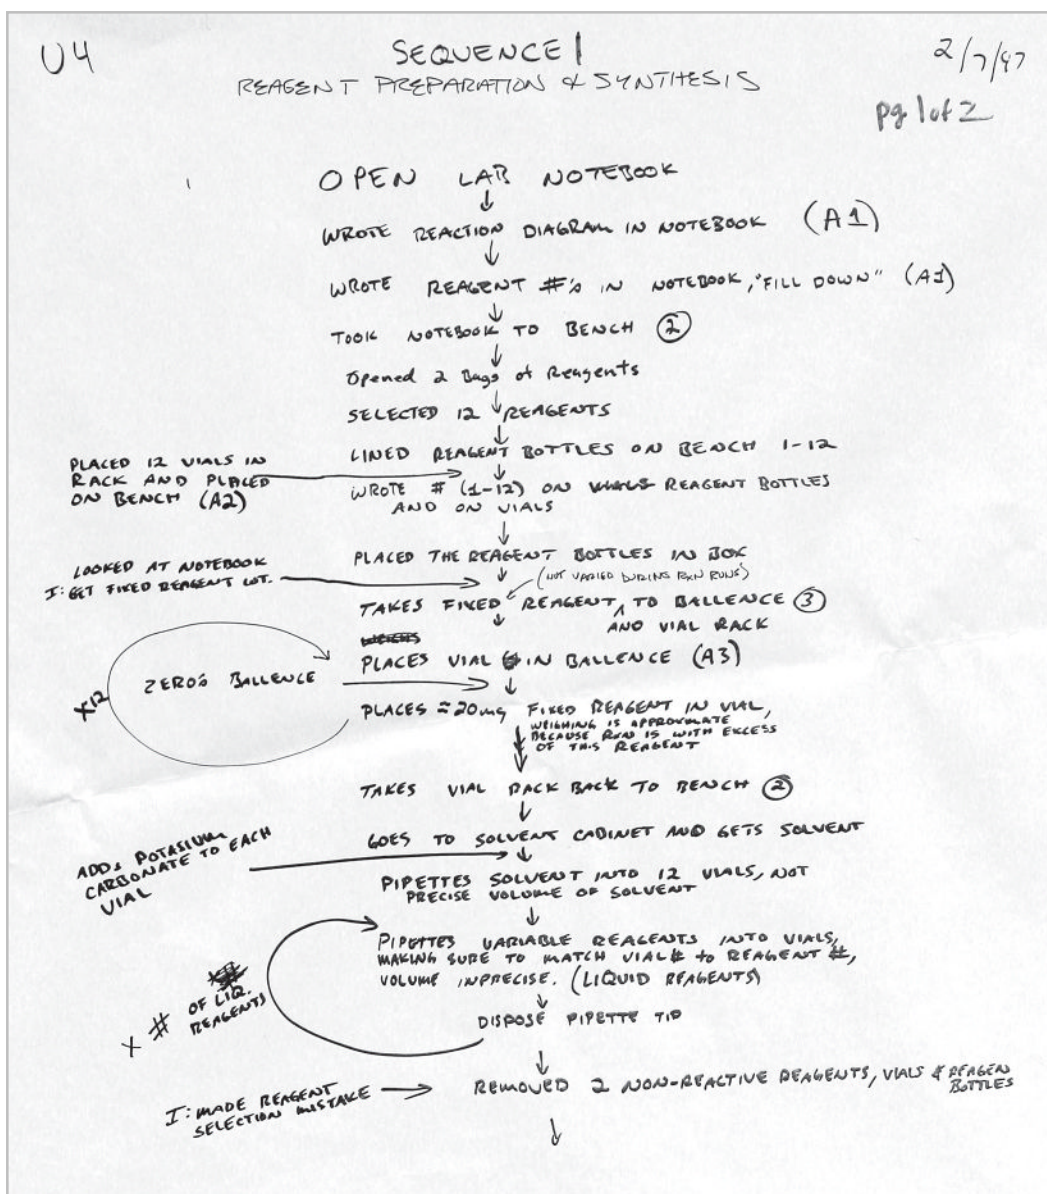 U4
SEQUENCE 1
2/7/97
REAGENT PREPARATION & SYNTHESIS
pg 1 of 2
OPEN LAB NOTEBOOK
WROTE REACTION DIAGRAM IN NOTEBOOK (A1)
WROTE REAGENT #'s IN NOTEBOOK, "FILL DOWN" (A1)
TOOK NOTEBOOK TO BENCH 2
Opened 2 Bags of Reagents
SELECTED 12 REAGENTS
LINED REAGENT BOTTLES ON BENCH 1-12
PLACED 12 VIALS IN
RACK AND PLACED
ON BENCH (A2)
WROTE # (1-12) ON VIALS REAGENT BOTTLES
AND ON VIALS
PLACED THE REAGENT BOTTLES IN BOX
LOOKED AT NOTEBOOK
I: GET FIXED REAGENT LOT.
(NOT VARIED DURING RXN RUNS)
TAKES FIXED REAGENT ^ TO BALLENCE 3
AND VIAL RACK
WEIGHS
PLACES VIAL IN BALLENCE (A3)
X12
ZERO'S BALLENCE
PLACES ≈20mg FIXED REAGENT IN VIAL,
WEIGHING IS APPROXIMATE
BECAUSE RXN IS WITH EXCESS
OF THIS REAGENT
TAKES VIAL RACK BACK TO BENCH 2
GOES TO SOLVENT CABINET AND GETS SOLVENT
ADDS POTASIUM
CARBONATE TO EACH
VIAL
PIPETTES SOLVENT INTO 12 VIALS, NOT
PRECISE VOLUME OF SOLVENT
PIPETTES VARIABLE REAGENTS INTO VIALS,
MAKING SURE TO MATCH VIAL# to REAGENT #,
VOLUME INPRECISE. (LIQUID REAGENTS)
X # OF LIQ.
REAGENTS
DISPOSE PIPETTE TIP
REMOVED 2 NON-REACTIVE REAGENTS, VIALS & REAGEN
BOTTLES
I: MADE REAGENT
SELECTION MISTAKE